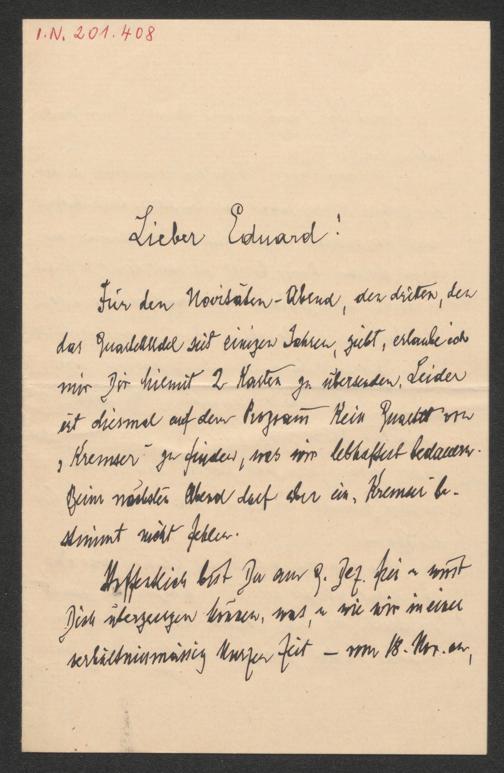 I.N. 201.408
Lieber Eduard!
Für den Novitäten-Abend, den dritten, den
das Quartett seit einigen Jahren, giebt, erlaube ich
mir Dir hiemit 2 Karten zu übersenden. Leider
ist diesmal auf dem Program kein Quartett von
"Kremser" zu finden, was wir lebhaftest bedauern.
Beim nächsten Abend darf aber ein "Kremser" be-
stimmt nicht fehlen.
Hoffentlich bist Du am 9. Dez. frei u wirst
Dich überzeugen können, was, u wie wir in einer
verhältnismässig kurzen Zeit – vom 18. Nov. an,